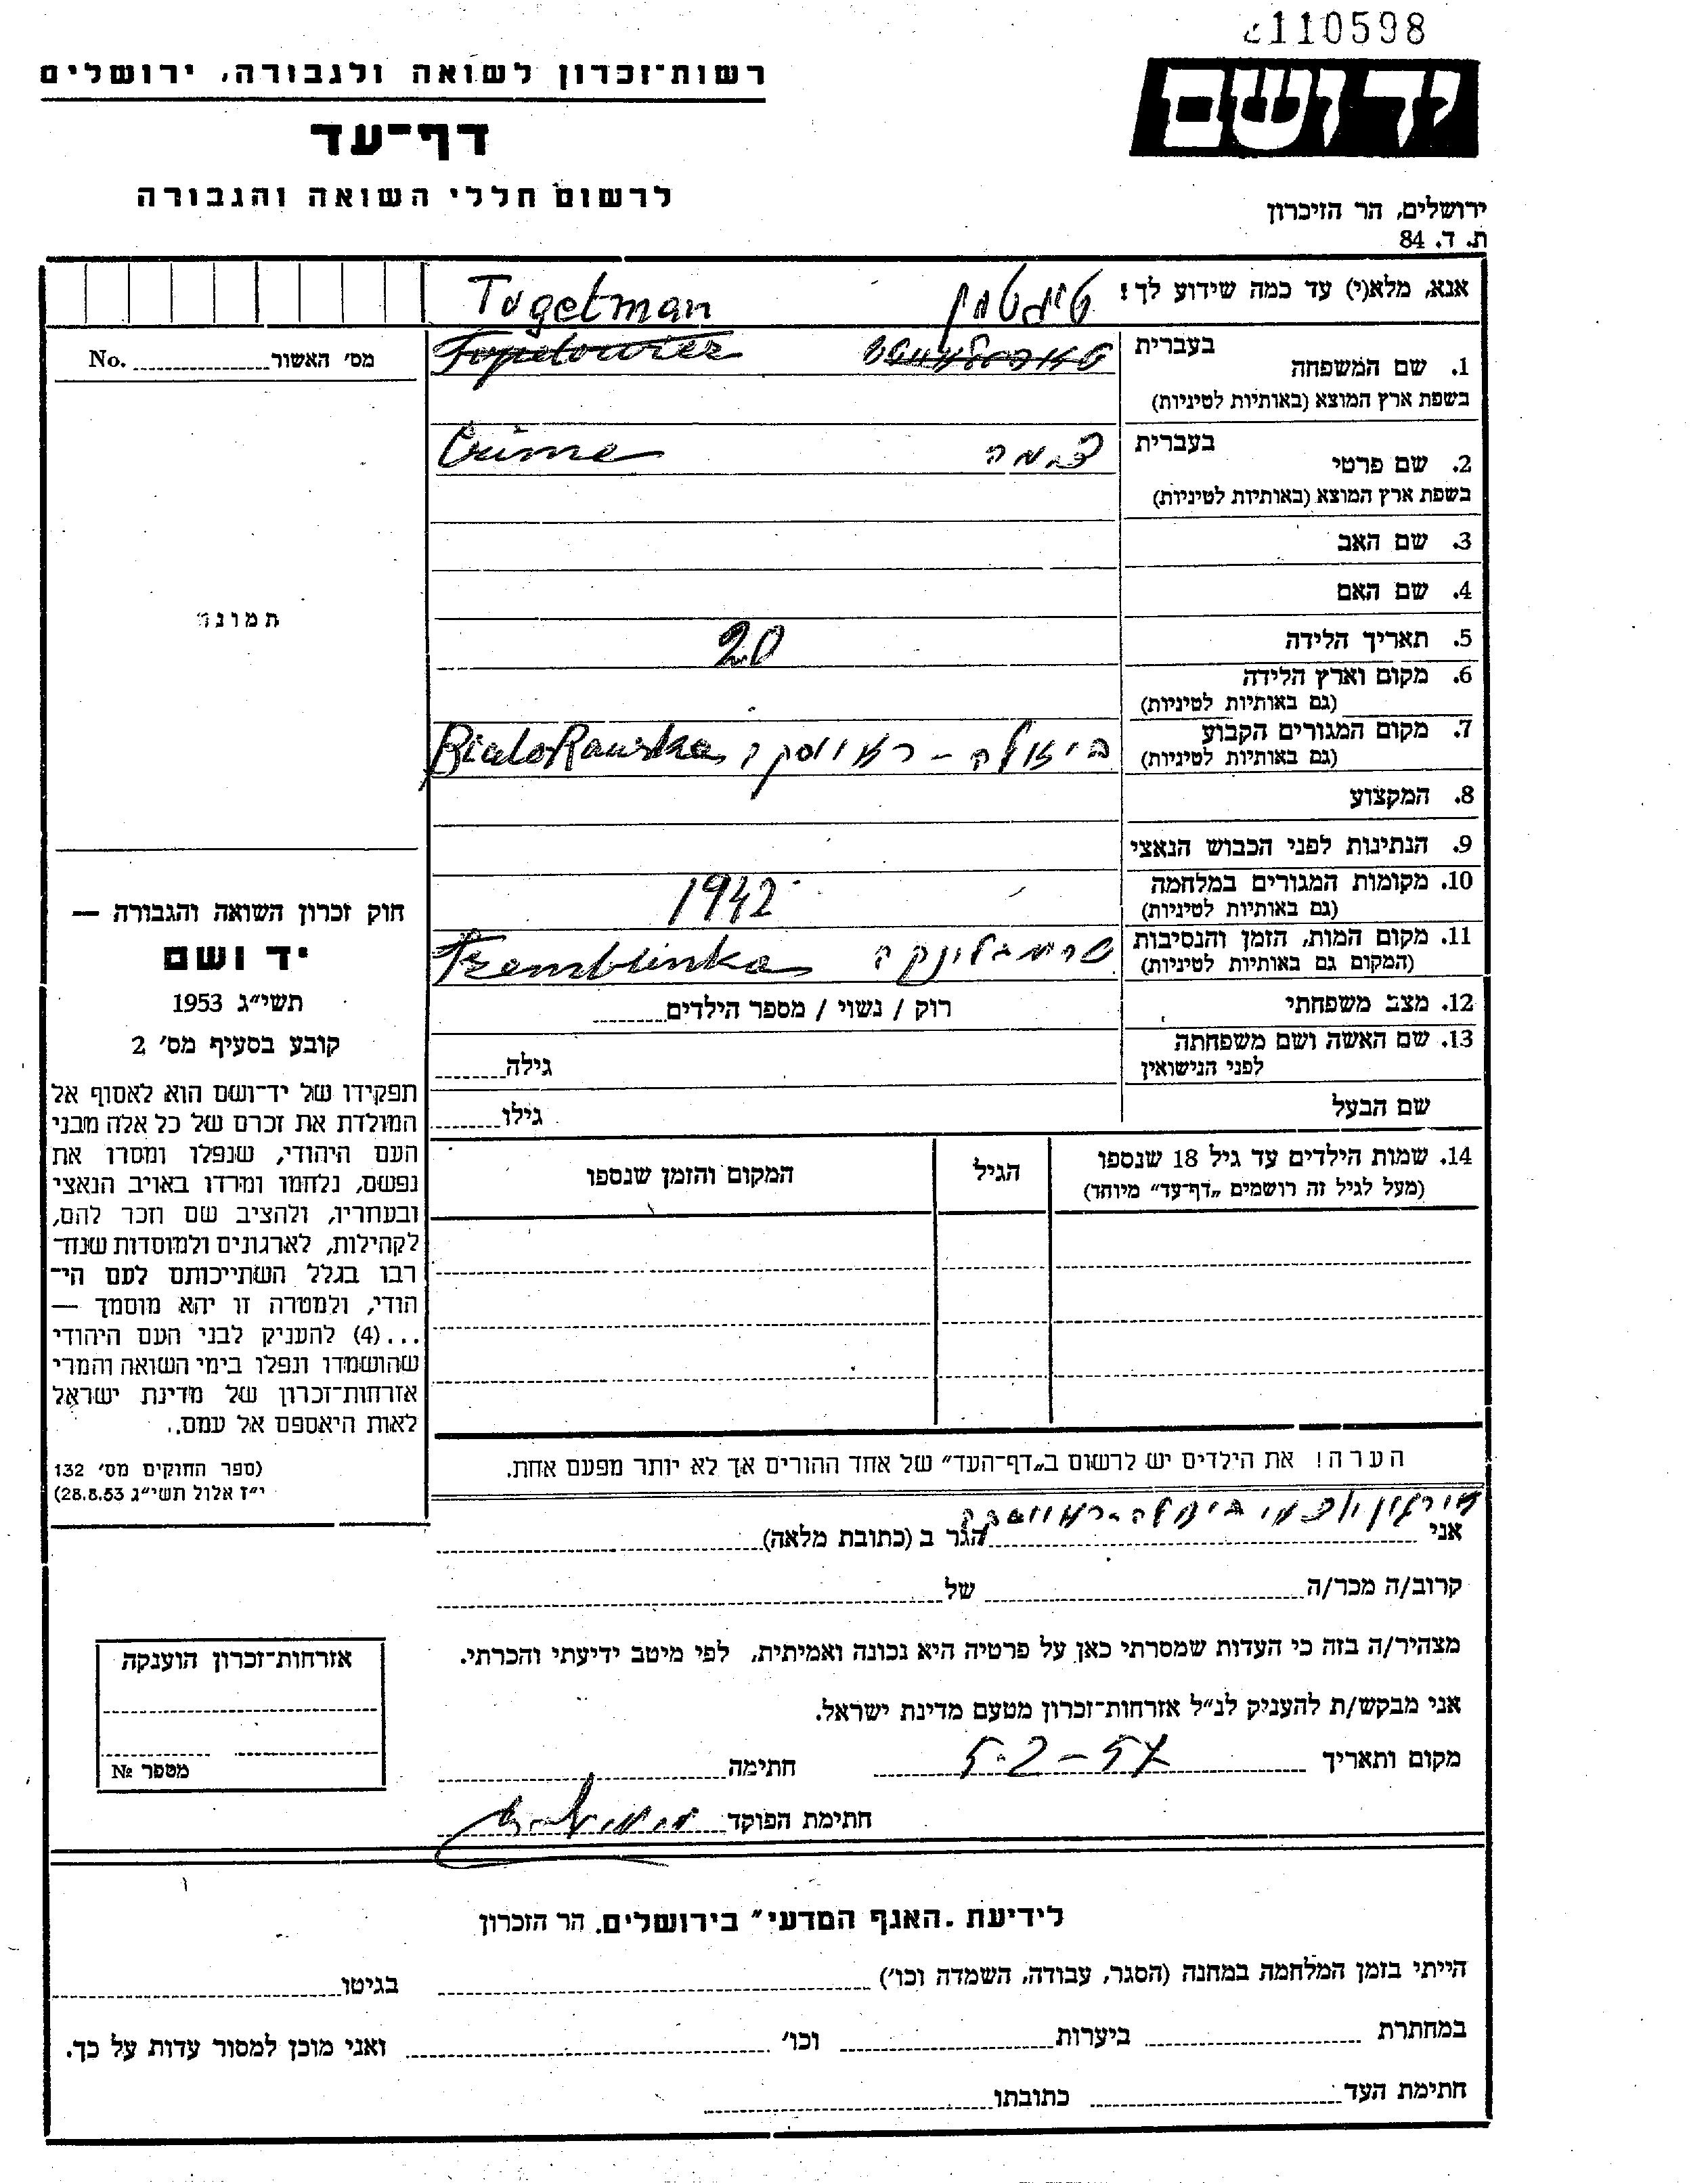 2110598
יד ושם
רשות־זכרון לשואה ולגבורה, ירושלים
דף־עד
לרשום חללי השואה והגבורה
ירושלים, הר הזיכרון
ת. ד. 84
אנא, מלא(י) עד כמה שידוע לך!
טיגטמן Tugetman
בעברית
1. שם המשפחה
בשפת ארץ המוצא (באותיות לטיניות)
מס׳ האשור No.
בעברית
2. שם פרטי
בשפת ארץ המוצא (באותיות לטיניות)
3. שם האב
4. שם האם
תמונה
5. תאריך הלידה 20
6. מקום וארץ הלידה
(גם באותיות לטיניות)
7. מקום המגורים הקבוע
(גם באותיות לטיניות)
ביאלה - ראווסקה BialoRawska
8. המקצוע
9. הנתינות לפני הכבוש הנאצי
10. מקומות המגורים במלחמה
(גם באותיות לטיניות)
1942
11. מקום המות, הזמן והנסיבות
(המקום גם באותיות לטיניות)
Tremblinka
12. מצב משפחתי רוק / נשוי / מספר הילדים
13. שם האשה ושם משפחתה
לפני הנישואין
גילה
שם הבעל גילו
14. שמות הילדים עד גיל 18 שנספו
(מעל לגיל זה רושמים „דף־עד” מיוחד)
הגיל
המקום והזמן שנספו
הערה! את הילדים יש לרשום ב„דף־העד” של אחד ההורים אך לא יותר מפעם אחת.
חוק זכרון השואה והגבורה —
יד ושם
תשי״ג 1953
קובע בסעיף מס׳ 2
תפקידו של יד־ושם הוא לאסוף אל
המולדת את זכרם של כל אלה מבני
העם היהודי, שנפלו ומסרו את
נפשם, נלחמו ומרדו באויב הנאצי
ובעוזריו, ולהציב שם וזכר להם,
לקהילות, לארגונים ולמוסדות שנח־
רבו בגלל השתייכותם לעם הי־
הודי, ולמטרה זו יהא מוסמך —
...(4) להעניק לבני העם היהודי
שהושמדו ונפלו בימי השואה והמרי
אזרחות־זכרון של מדינת ישראל
לאות היאספם אל עמם.
(ספר החוקים מס׳ 132
י״ז אלול תשי״ג 28.8.53)
אירגון יוצאי ביאלה-ראווסקה
אני הגר ב (כתובת מלאה)
קרוב/ה מכר/ה של
מצהיר/ה בזה כי העדות שמסרתי כאן על פרטיה היא נכונה ואמיתית, לפי מיטב ידיעתי והכרתי.
אני מבקש/ת להעניק לנ״ל אזרחות־זכרון מטעם מדינת ישראל.
מקום ותאריך 5-2-57 חתימה
חתימת הפוקד
אזרחות־זכרון הוענקה
מספר №
לידיעת „האגף המדעי” בירושלים, הר הזכרון
הייתי בזמן המלחמה במחנה (הסגר, עבודה, השמדה וכו׳) בגיטו
במחתרת ביערות וכו׳ ואני מוכן למסור עדות על כך.
חתימת העד כתובתו